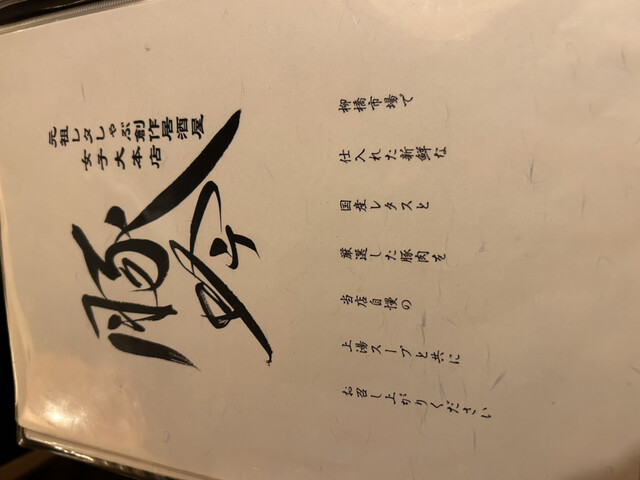 元祖レタしゃぶ創作居酒屋
女子大本店
豚吟
柳橋市場で
仕入れた新鮮な
国産レタスと
厳選した豚肉を
当店自慢の
上湯スープと共に
お召し上がりください